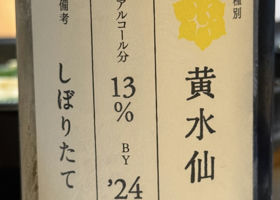 種別
黄水仙
アルコール分
13%
BY
’24
備考
しぼりたて